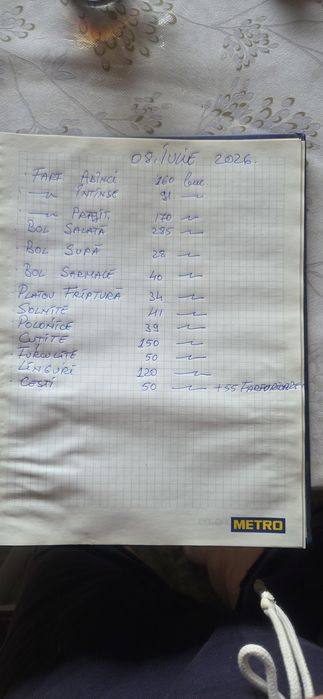 08. IULIE 2026.
· FARF ADÎNCI 160 buc.
· —"— ÎNTINSE 91 —"—
· —"— PRĂJIT. 170 —"—
· BOL SALATĂ 295 —"—
· BOL SUPĂ 28 —"—
· BOL SARMALE 40 —"—
PLATOU FRIPTURĂ 34 —"—
· SOLNIȚE 41 —"—
· POLONICE 39 —"—
· CUȚITE 150 —"—
· FURCULIȚE 50 —"—
· LINGURI 120 —"—
· CEȘTI 50 —"— + 55 FARFURIOARE
METRO